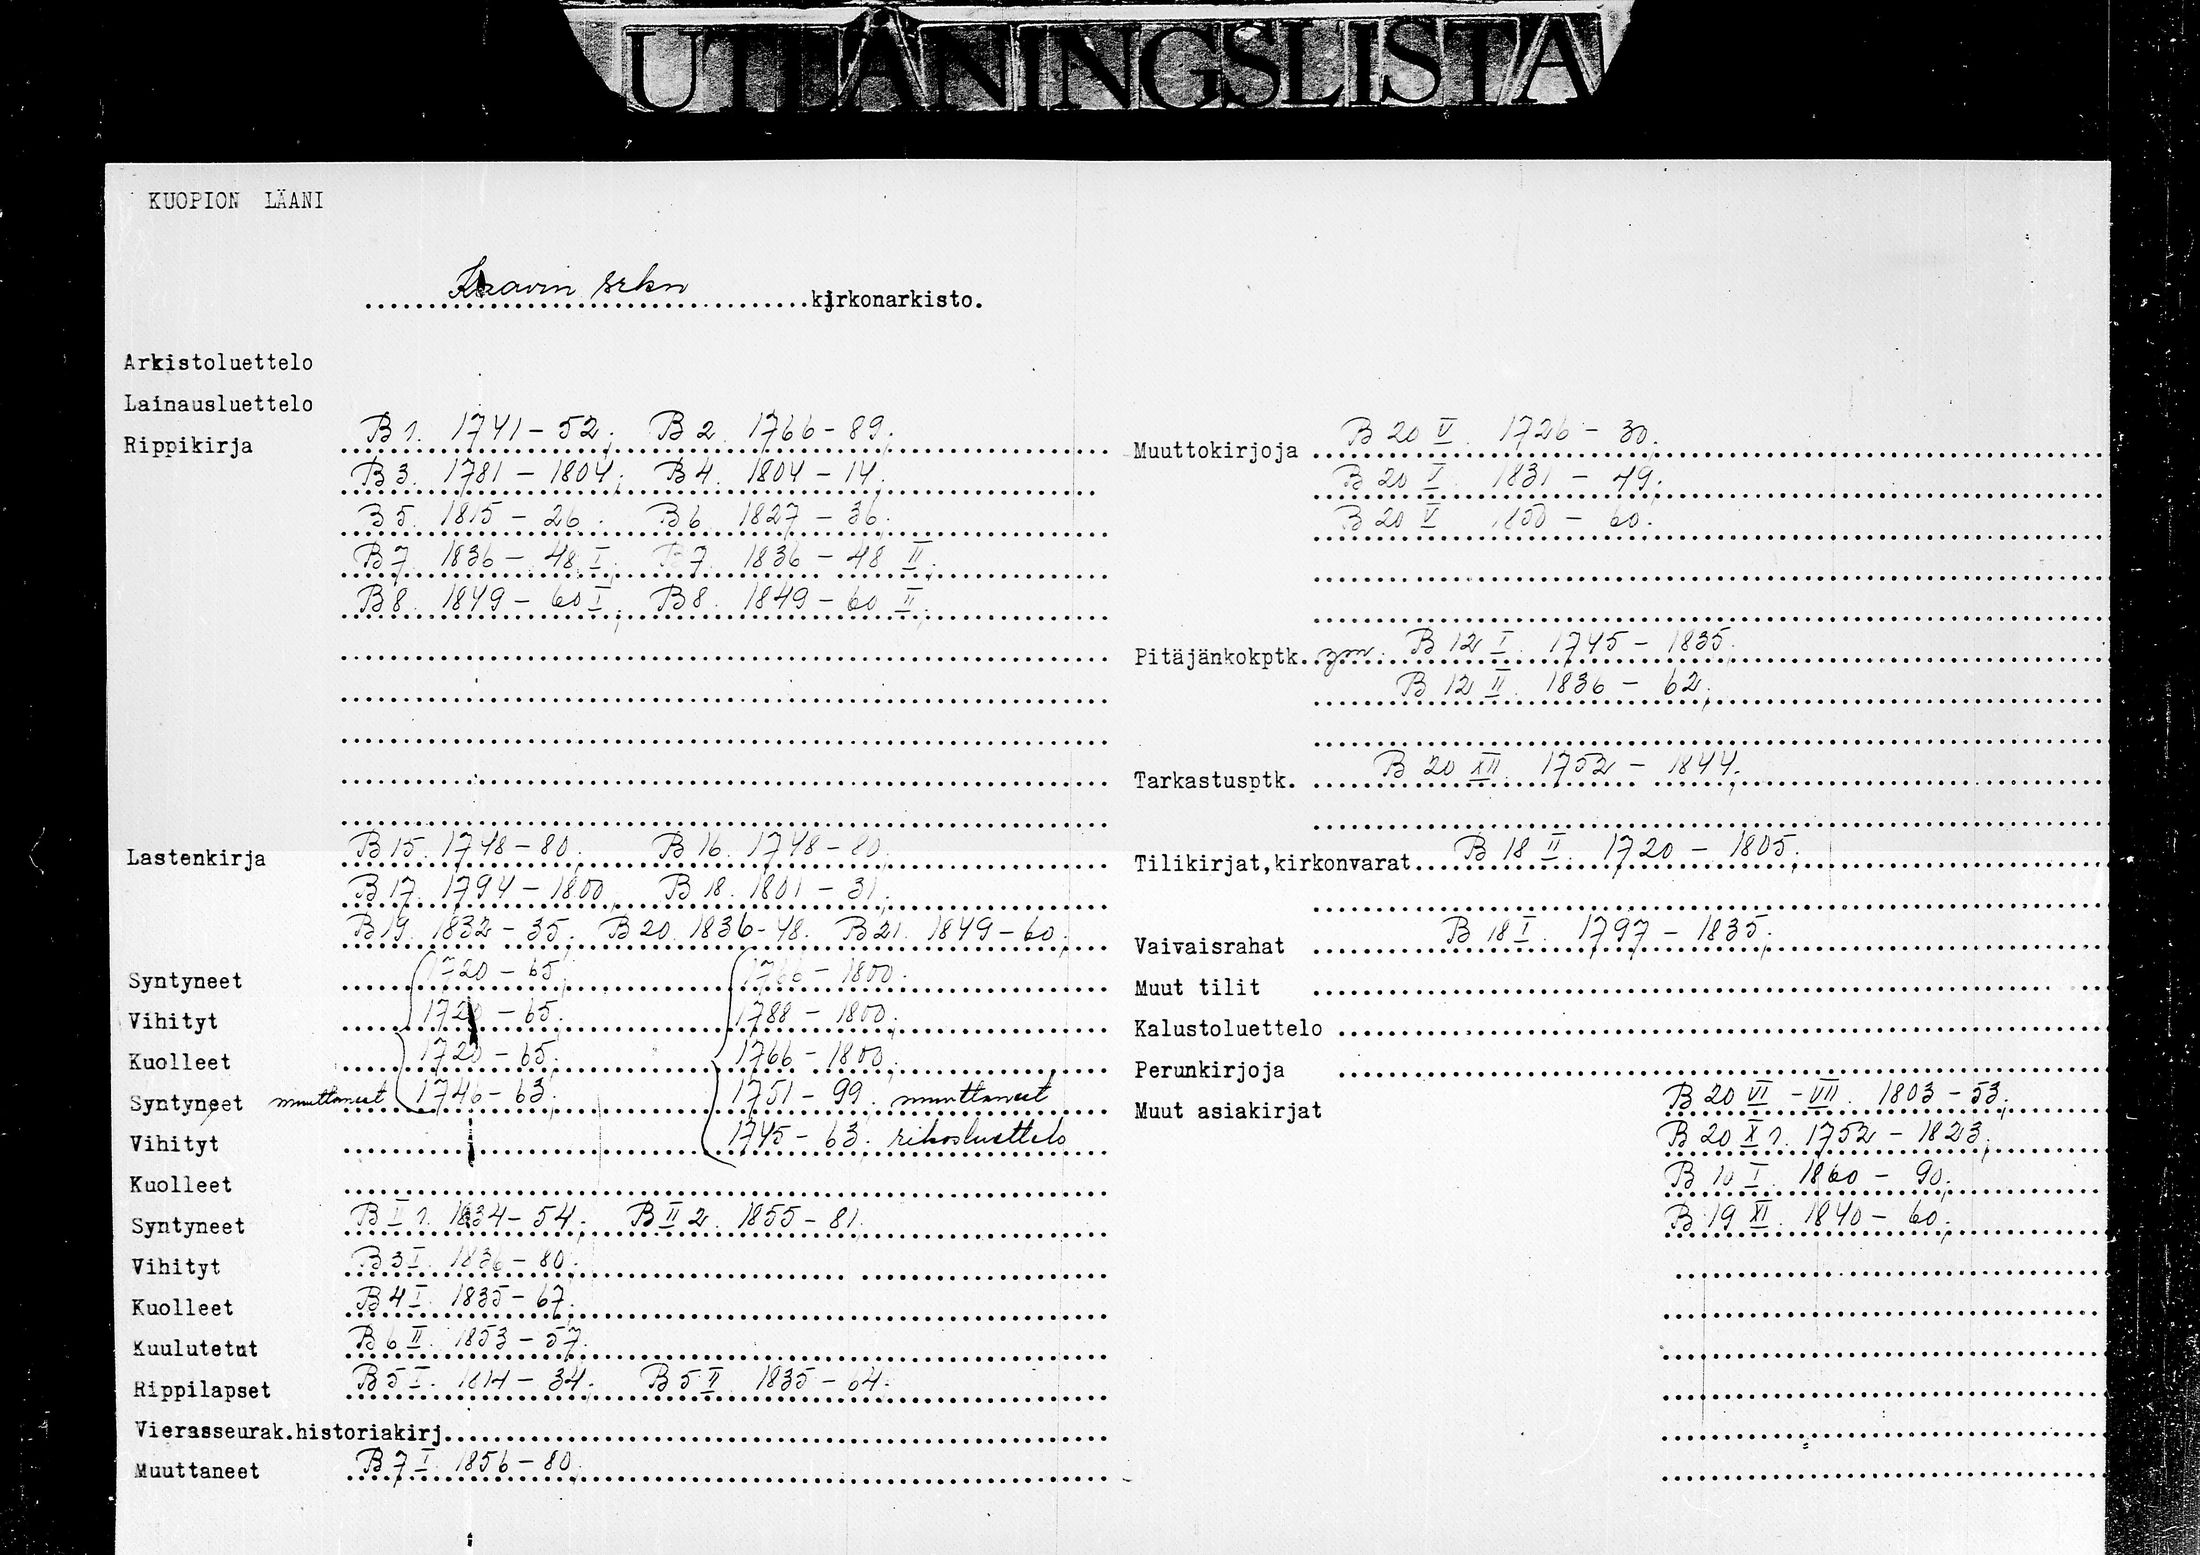 UTLÅNINGSLISTA
KUOPION LÄANI
Kaavin srkn kirkonarkisto.
Arkistoluettelo
Lainausluettelo
Rippikirja B 1. 1741-52; B 2. 1766-89;
B 3. 1781-1804; B 4. 1804-14;
B 5. 1815-26. B 6. 1827-36.
B 7. 1836-48 I; B 7. 1836-48 II;
B 8. 1849-60 I; B 8. 1849-60 II;
Lastenkirja B 15. 1748-80; B 16. 1748-80;
B 17. 1794-1800; B 18. 1801-31;
B 19. 1832-35; B 20. 1836-48. B 21. 1849-60;
Syntyneet 1720-65; 1766-1800.
Vihityt 1720-65; 1788-1800;
Kuolleet 1720-65; 1766-1800;
Syntyneet muuttaneet 1746-63; 1751-99. muuttaneet
Vihityt 1745-63. rikosluettelo
Kuolleet
Syntyneet B II 1. 1834-54; B II 2. 1855-81.
Vihityt B 3 I. 1836-80.
Kuolleet B 4 I. 1835-67.
Kuulutetut B 6 II. 1853-57.
Rippilapset B 5 I. 1814-34; B 5 II. 1835-64.
Vierasseurak.historiakirj.
Muuttaneet B 7 I. 1856-80;
Muuttokirjoja B 20 V. 1726-30;
B 20 V. 1831-49;
B 20 V. 1850-60.
Pitäjänkokptk. ym. B 12 I. 1745-1835;
B 12 II. 1836-62;
Tarkastusptk. B 20 XII. 1752-1844;
Tilikirjat,kirkonvarat B 18 II. 1720-1805;
Vaivaisrahat B 18 I. 1797-1835;
Muut tilit
Kalustoluettelo
Perunkirjoja
Muut asiakirjat B 20 VI-VII. 1803-53;
B 20 X 1. 1752-1823;
B 10 I. 1860-90;
B 19 XI. 1840-60;